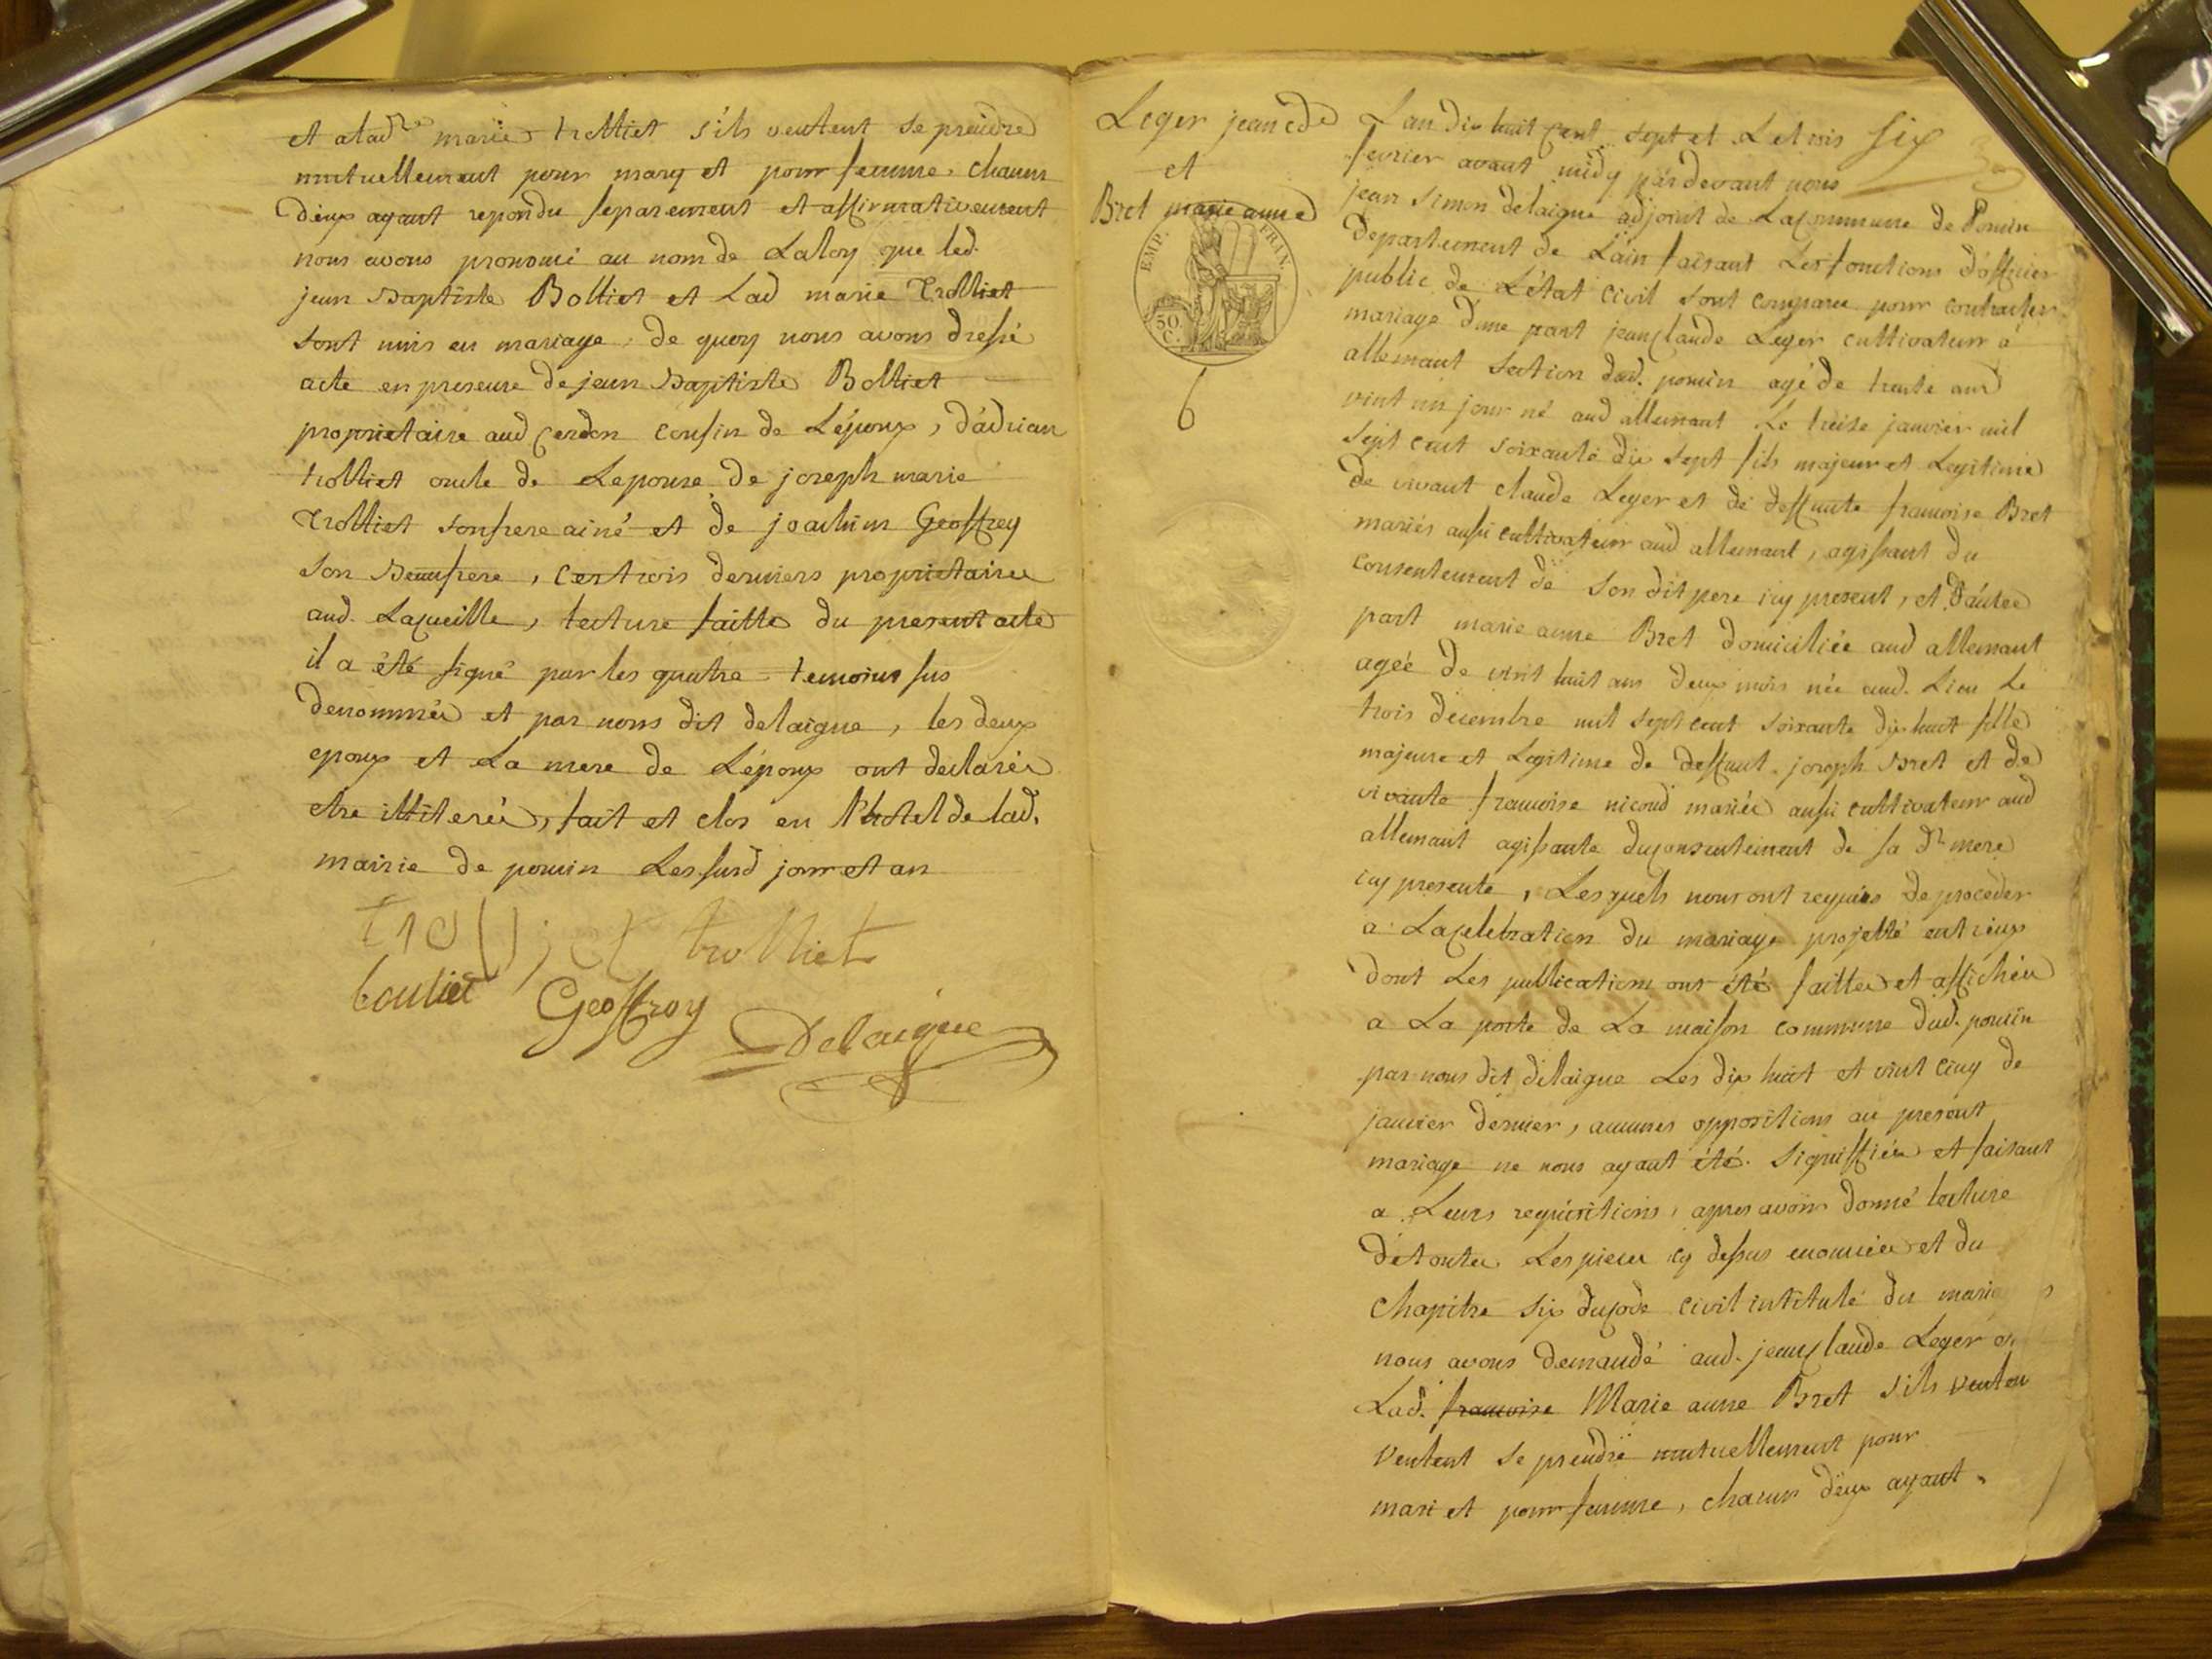 et alad.te marie trolliet s'ils veulent se preudre
mutuellement pour mary et pour femme, chacun
d'eux ayant repondu separement et affirmativement
nous avons prononcé au nom de La loy que led.
jean Baptiste Bolliet et Lad marie Trolliet
sont unis en mariage, de quoy nous avons dressé
acte en presence de jean Baptiste Bolliet
proprietaire aud Cerdon cousin de L'époux, d'adrian
trolliet oncle de Lepouse, de joseph marie
Trolliet son frere ainé et de joachim Geoffrey
son Beaufrere, ces trois derniers proprietaires
aud. Lacueille, lecture faitte du present acte
il a été signé par les quatre temoins sus
denommés et par nous dit delaigue, les deux
epoux et La mere de L'époux ont declarés
etre illiterés, fait et clos en l'hotel de lad.
mairie de poncin Les susd jour et an
trolliet trolliet
bouliet Geoffroy
Delaigue
Leger jean cde
et
Bret marie anne
EMP. FRAN.
50. C.
6
L'an dix huit cent sept et Le trois six
fevrier avant midy pardevant nous
jean Simon delaigue adjoint de La commune de Poncin
departement de L'ain faisant Les fonctions d'officier
public de L'état civil sont comparu pour contracter
mariage d'une part jean claude Leger cultivateur a
allemant section dud. poncin agé de trente ans
vint un jour né aud allemant Le treise janvier mil
sept cent soixante dix sept fils majeur et Legitime
de vivant claude Leger et de deffunte francoise Bret
mariés aussi cultivateur aud allemant, agissant du
consentement de son dit pere icy present, et d'autre
part marie anne Bret domiciliée aud allemant
agée de vint huit ans deux mois née aud. Lieu Le
trois decembre mil sept cent soixante dix huit fille
majeure et Legitime de deffunt joseph Bret et de
vivante francoise nicoud mariés aussi cultivateur aud
allemant agissante du consentement de sa dte mere
icy presente, Lesquels nous ont requies de proceder
a La celebration du mariage projetté entr'eux
dont Les publications ont été faittes et affichées
a La porte de La maison commune dud. poncin
par nous dit delaigue Les dix huit et vint cinq de
janvier dernier, aucunes oppositions au present
mariage ne nous ayant été signiffiées et faisant
a Leurs requisitions, apres avoir donné lecture
de toutes Les pieces cy dessus enoncées et du
chapitre six du code civil intitulé du mariage
nous avons demandé aud. jean claude Leger a
Lad. francoise Marie anne Bret s'ils veulen
veulent se prendre mutuellement pour
mari et pour femme, chacun d'eux ayant